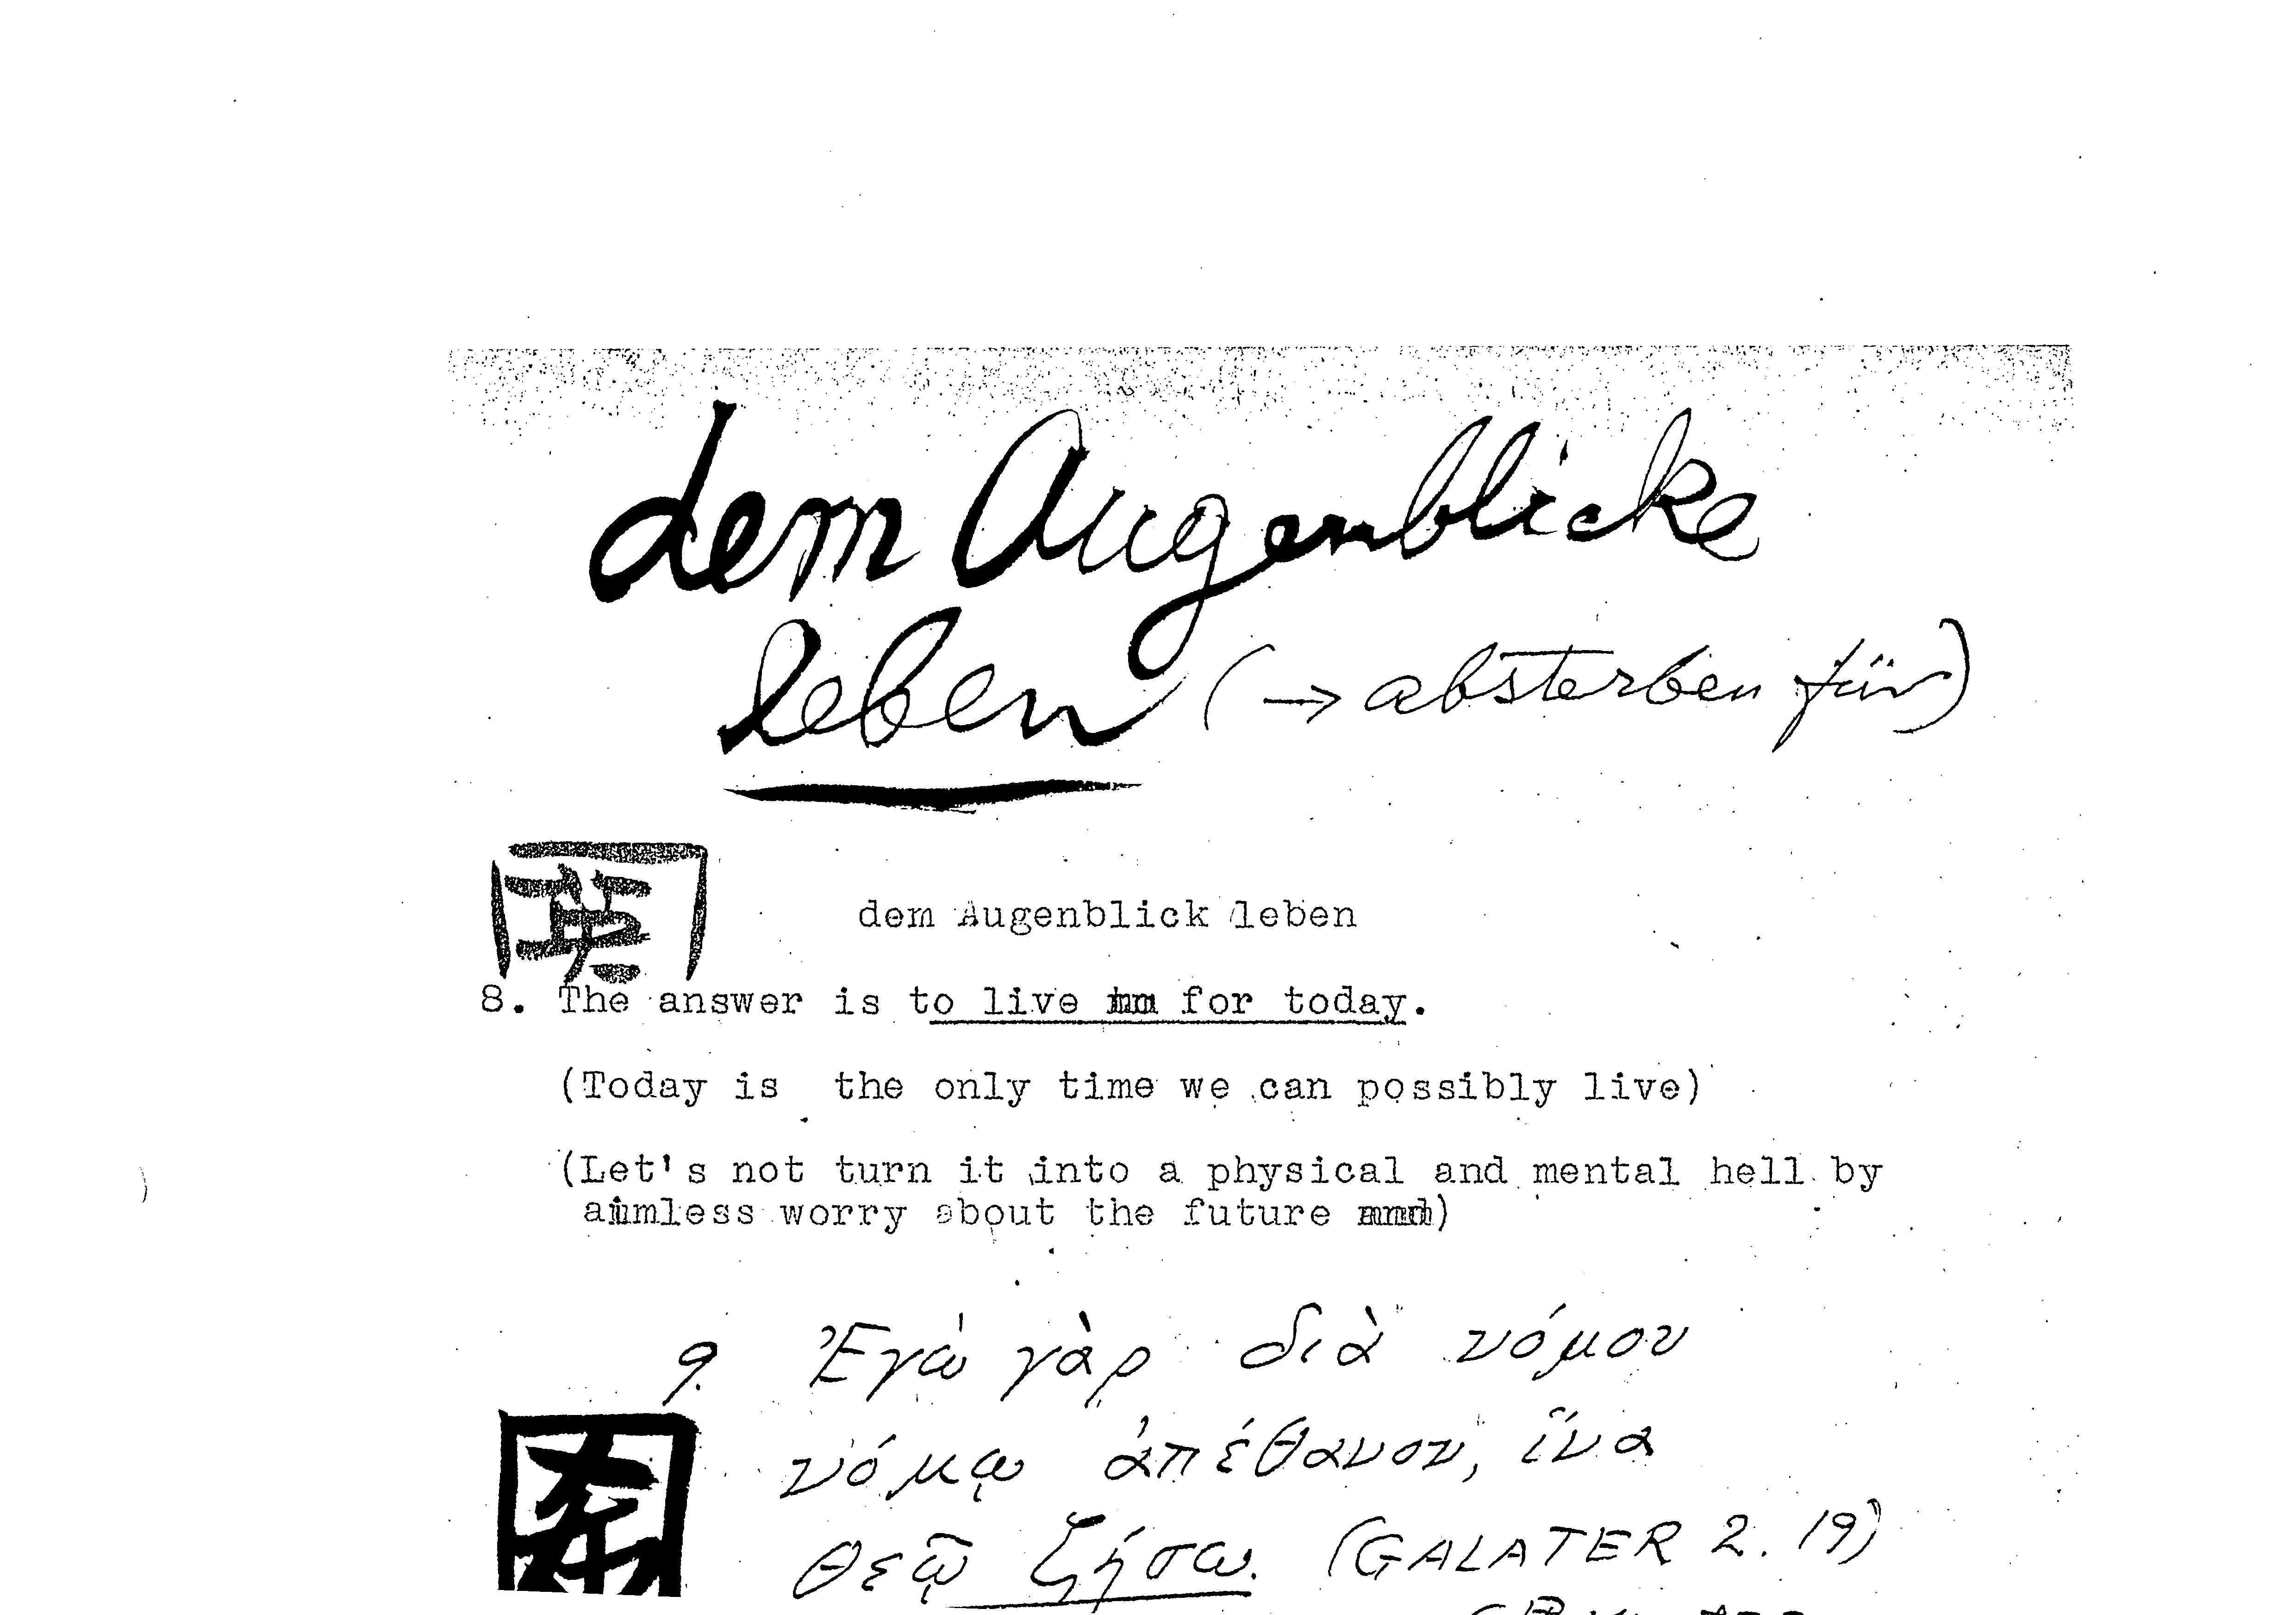 dem Augenblicke
leben (→ absterben für)
dem Augenblick leben
8. The answer is to live for today.
(Today is the only time we can possibly live)
(Let's not turn it into a physical and mental hell by
aimless worry about the future)
9. Ἐγὼ γὰρ διὰ νόμου
νόμῳ ἀπέθανον, ἵνα
θεῷ ζήσω. (GALATER 2. 19)